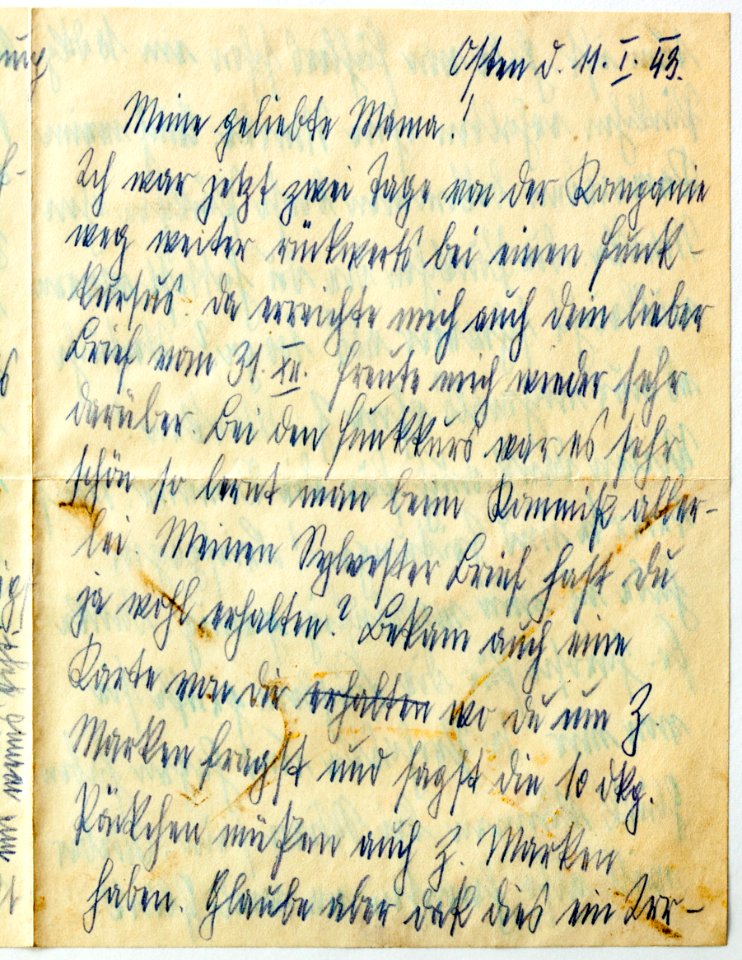 Osten d. 11. I. 43.
Meine geliebte Mama!
Ich war jetzt zwei Tage von der Kompanie
weg weiter rückwerts bei einen Funk-
kursus. Da erreichte mich auch dein lieber
Brief vom 31. XII. Freute mich wieder sehr
darüber. Bei den Funkkurs war es sehr
schön so lernt man beim Kommiß aller-
lei. Meinen Sylvester Brief hast du
ja wohl erhalten? Bekam auch eine
Karte von dir erhalten wo du um Z
Marken fragst und sagst die 10 dkg.
Päckchen müßen auch Z. Marken
haben. Glaube aber daß dies ein Irr-